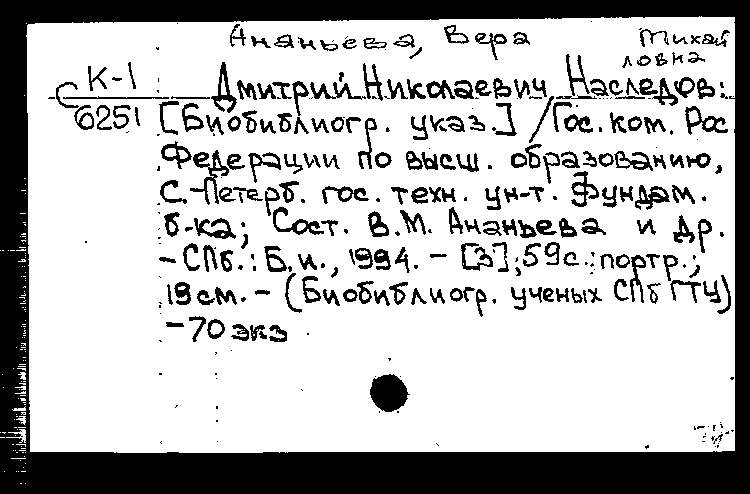 Ананьева, Вера Михай
ловна
К-1
С 6251
Дмитрий Николаевич Наследов:
[Биобиблиогр. указ.] / Гос. ком. Рос.
Федерации по высш. образованию,
С.-Петерб. гос. техн. ун-т. Фундам.
б-ка; Сост. В.М. Ананьева и др.
- СПб.: Б.и., 1994. - [3], 59с.: портр.;
19см. - (Библиогр. ученых СПбГТУ)
- 70 экз